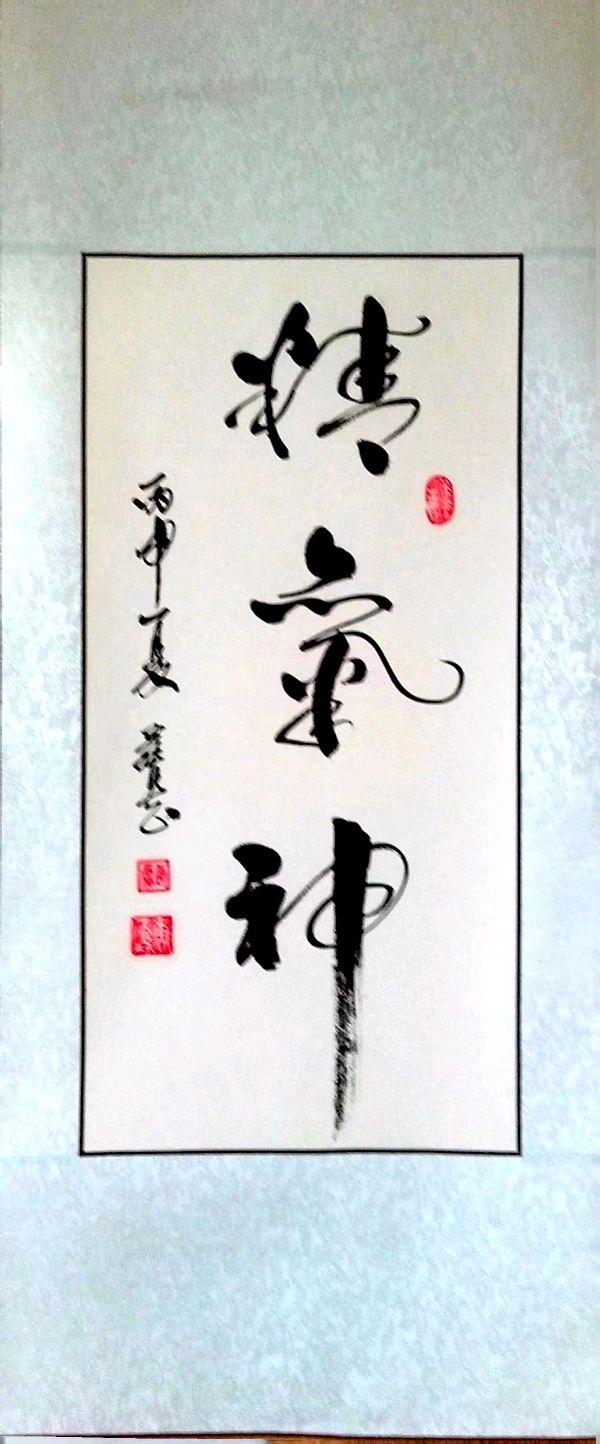 精氣神
丙申夏